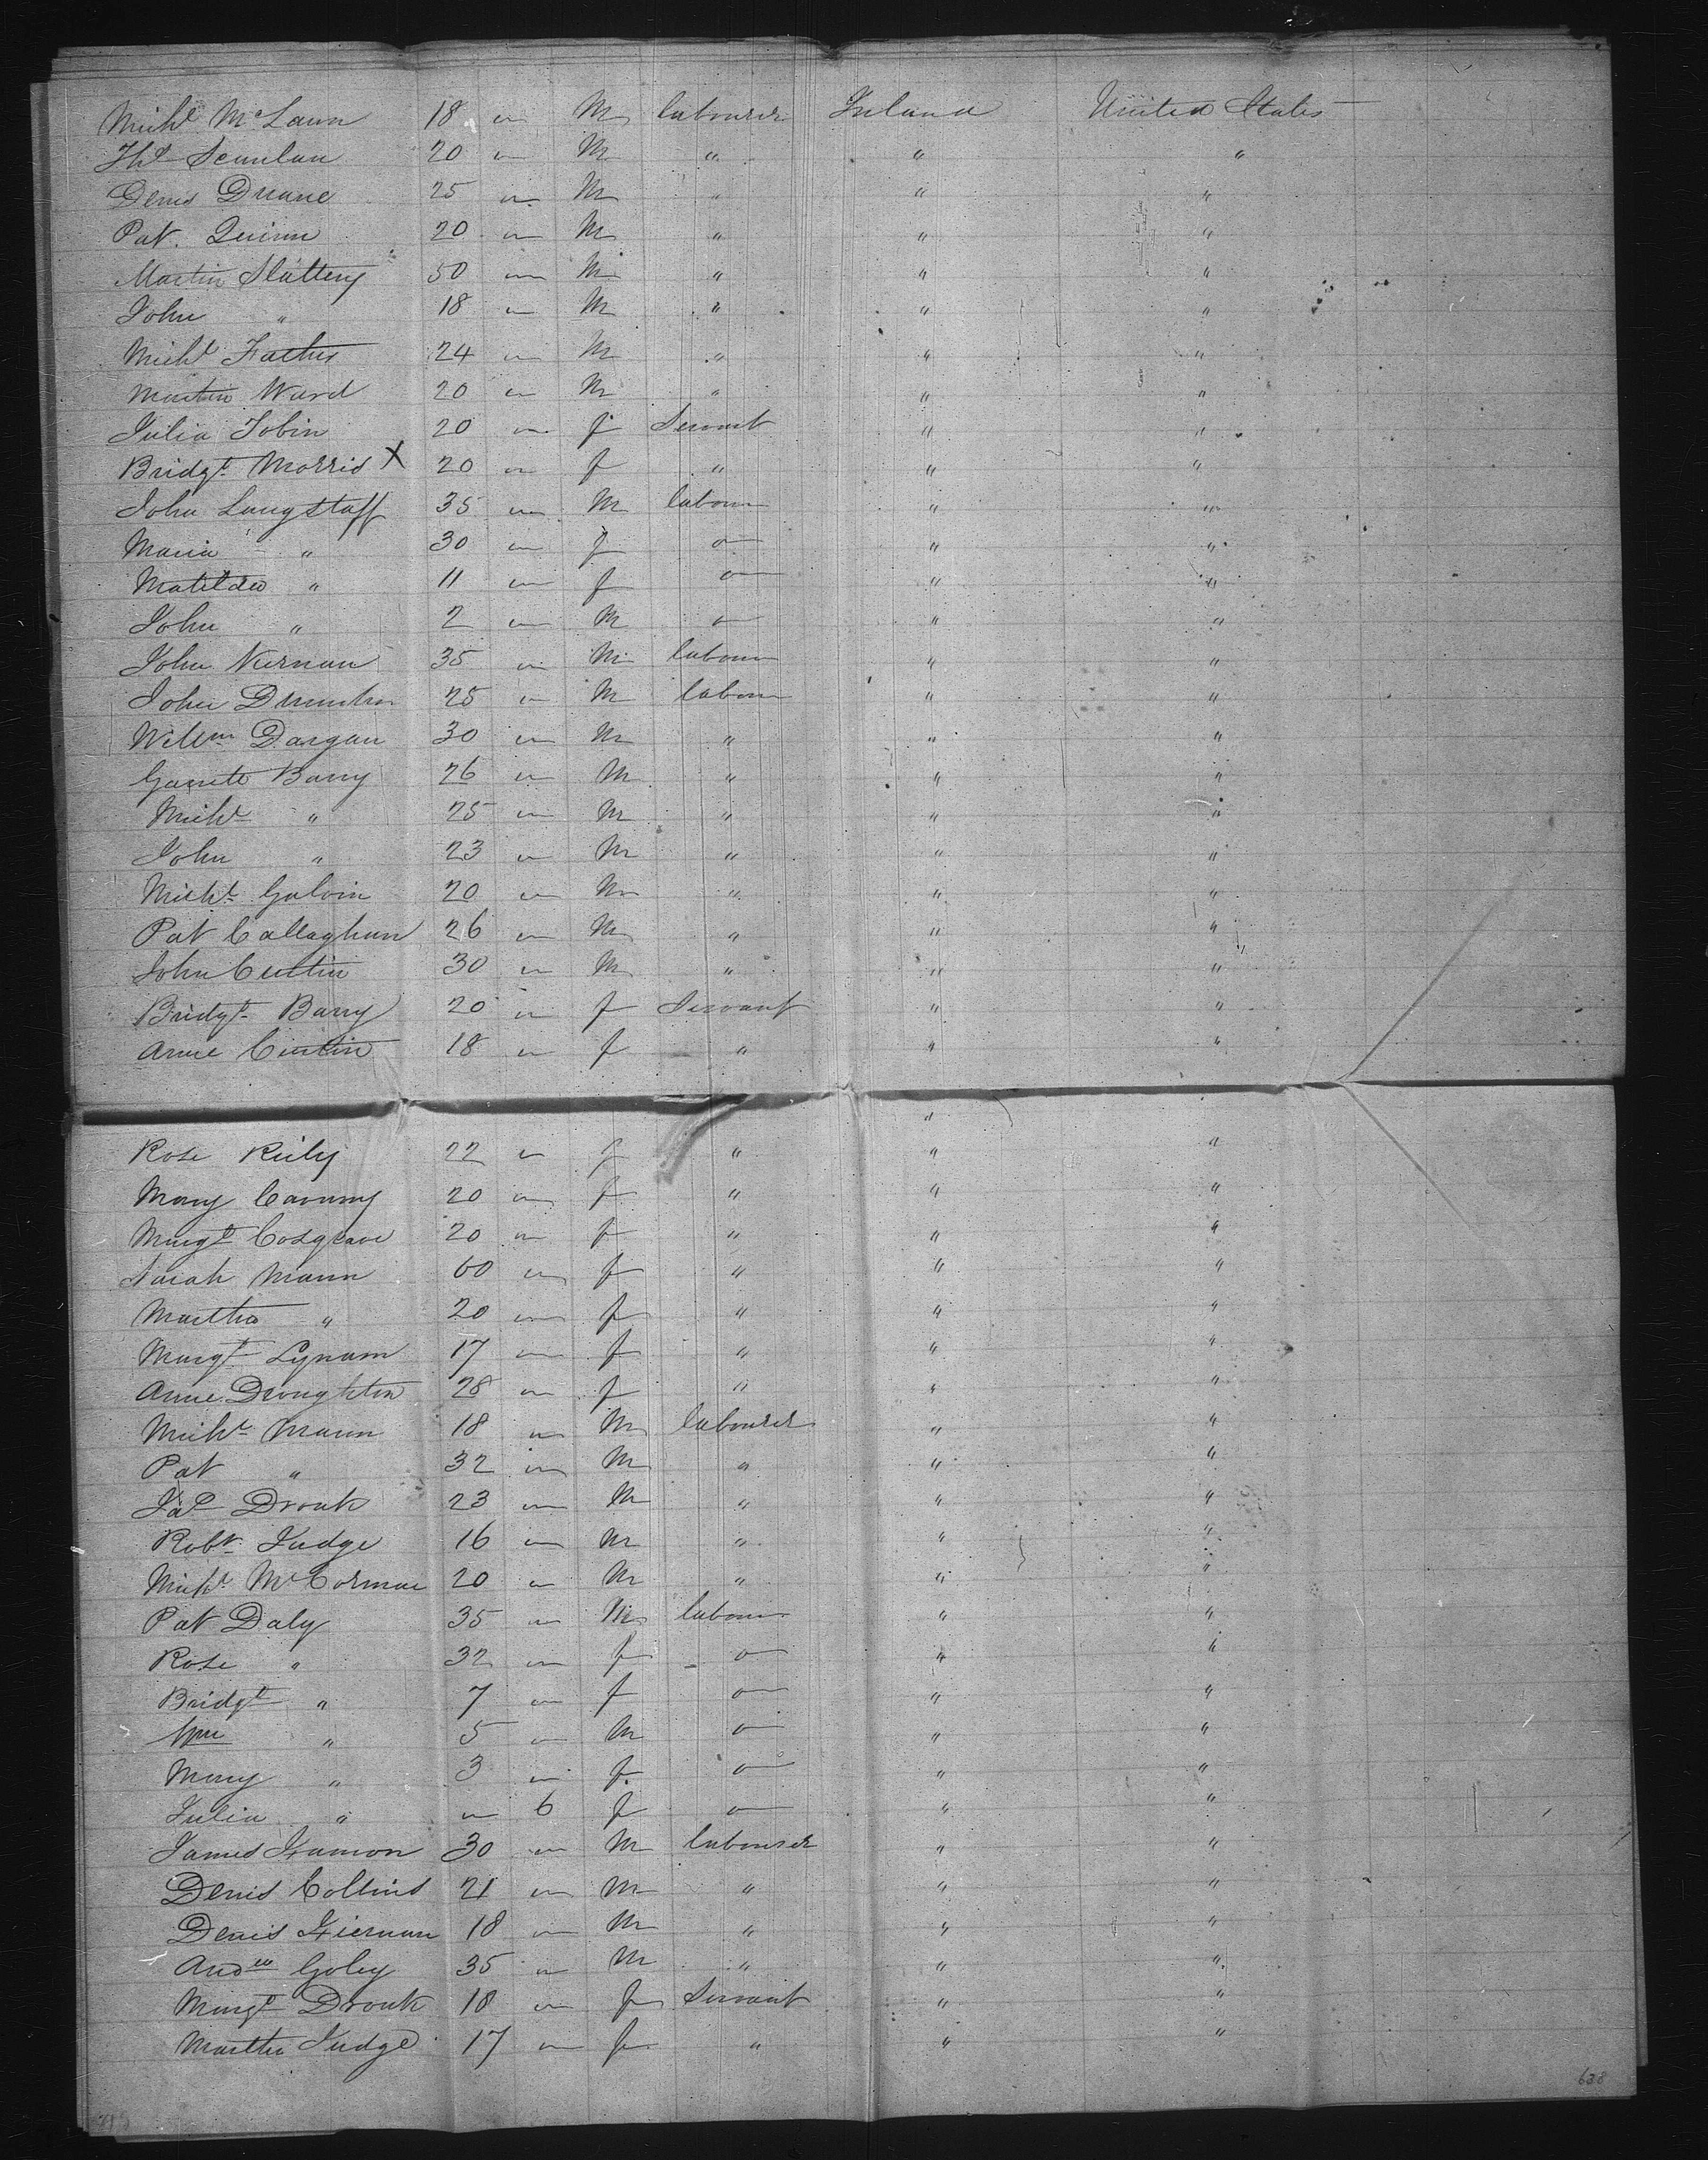 Michl McLaun 18 " M labourer Ireland United States
Ths Scanlan 20 " M " " "
Denis Druane 25 " M " " "
Pat. Quinn 20 " M " " "
Martin Slattery 50 " M " " "
John " 18 " M " " "
Michl 24 " M " " "
Martin Ward 20 " M " " "
Julia Tobin 20 " f Servant " "
Bridgt Morris X 20 " f " " "
John Langstaff 35 " M labour " "
Maria " 30 " f " " "
Matilda " 11 " f " " "
John " 2 " M " " "
John Kiernan 35 " M labour " "
John 25 " M labour " "
Willm Dargan 30 " M " " "
Garrett Barry 26 " M " " "
Michl " 25 " M " " "
John " 23 " M " " "
Michl Galvin 20 " M " " "
Pat Callaghan 26 " M " " "
John Curtin 30 " M " " "
Bridgt Barry 20 " f Servant " "
Anne Curtin 18 " f " " "
"
Rose Reily 22 " f " " "
Mary 20 " f " " "
Margt Cosgrave 20 " f " " "
Sarah Mann 60 " f " " "
Martha " 20 " f " " "
Margt Lynam 17 " f " " "
Anne Droughton 28 " f " " "
Michl Mann 18 " M labourer " "
Pat " 32 " M " " "
Jas Drouk 23 " M " " "
Robt Judge 16 " M " " "
Michl McCormac 20 " M " " "
Pat Daly 35 " M labour " "
Rose " 32 " f " " "
Bridgt " 7 " f " " "
Wm " 5 " M " " "
Mary " 3 " f " " "
Julia " " 6 f " " "
James 30 " M labourer " "
Denis Collins 21 " M " " "
Denis Kiernan 18 " M " " "
Andw Goley 35 " M " " "
Margt Drouk 18 " f Servant " "
Martha Judge 17 " f " " "
638